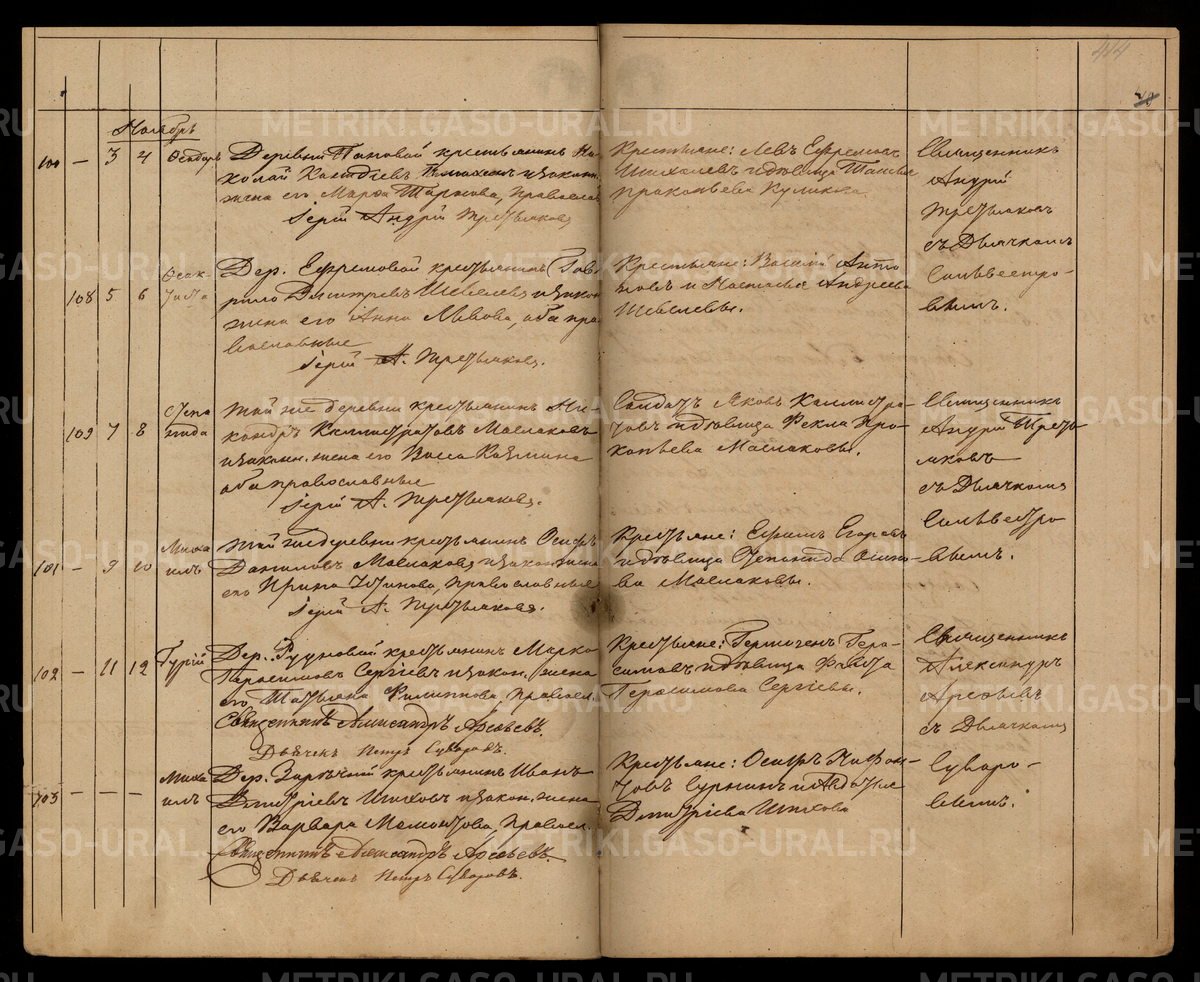 414
Ноябрь
100 — 3 4 Ѳеодоръ Деревни Пановой крестьянинъ Ни-
колай и законн.
жена его Марѳа Тарасова, православ
Іерій Андрій Третьяковъ
Крестьяне: Левъ Ефремовъ
и дѣвица Татьяна
Прокопьева Куликова.
Священникъ
Андрій
Третьяковъ
съ Дьячкомъ
Сильвестро-
вымъ.
108 5 6 Дер. Ефремовой крестьянинъ Гав-
рило Дмитревъ Шевелевъ и закон
жена его Анна Львова, оба пра-
вославные
Іерій А. Третьяковъ.
Крестьяне: Василій Анто
новъ и Настасья Андреева
Шевелевы.
109 7 8 Степа
нида Той же деревни крестьянинъ Ни-
кандръ Каллистратовъ Маслаковъ
и законн. жена его Васса Козмина
оба православные
Іерій А. Третьяковъ.
Солдатъ Яковъ Каллистра-
товъ и дѣвица Фекла Про-
копьева Маслаковы.
Священникъ
Андрій Треть-
яковъ
съ Дьячкомъ
Сильвестро-
вымъ.
101 — 9 10 Миха
илъ Той же деревни крестьянинъ Осипъ
Даниловъ Маслаковъ и закон. жена
его Ирина Устинова, православные
Іерій А. Третьяковъ.
Крестьяне: Ефимъ Егоровъ
и дѣвица Степанида Осипо-
ва Маслаковы.
102 — 11 12 Гурій Дер. Рудновой крестьянинъ Марко
Герасимовъ Сергіевъ и закон. жена
его Татьяна Филиппова, правосл.
Священникъ Александръ Арефьевъ.
Дьячекъ Петръ Суворовъ.
Крестьяне: Гермогенъ Гера-
симовъ и дѣвица
Герасимова Сергіевы.
Священникъ
Александръ
Арефьевъ
съ Дьячкомъ
Суворо-
вымъ.
103 — — — Миха
илъ Дер. Зарѣчной крестьянинъ Иванъ
Дмитріевъ Шиховъ и закон. жена
его Варвара Мамонтова, правосл.
Священникъ Александръ Арефьевъ
Дьячекъ Петръ Суворовъ.
Крестьяне: Осипъ Ксефон-
товъ Сурнинъ и Авдотья
Дмитріева Шихова
METRIKI.GASO-URAL.RU